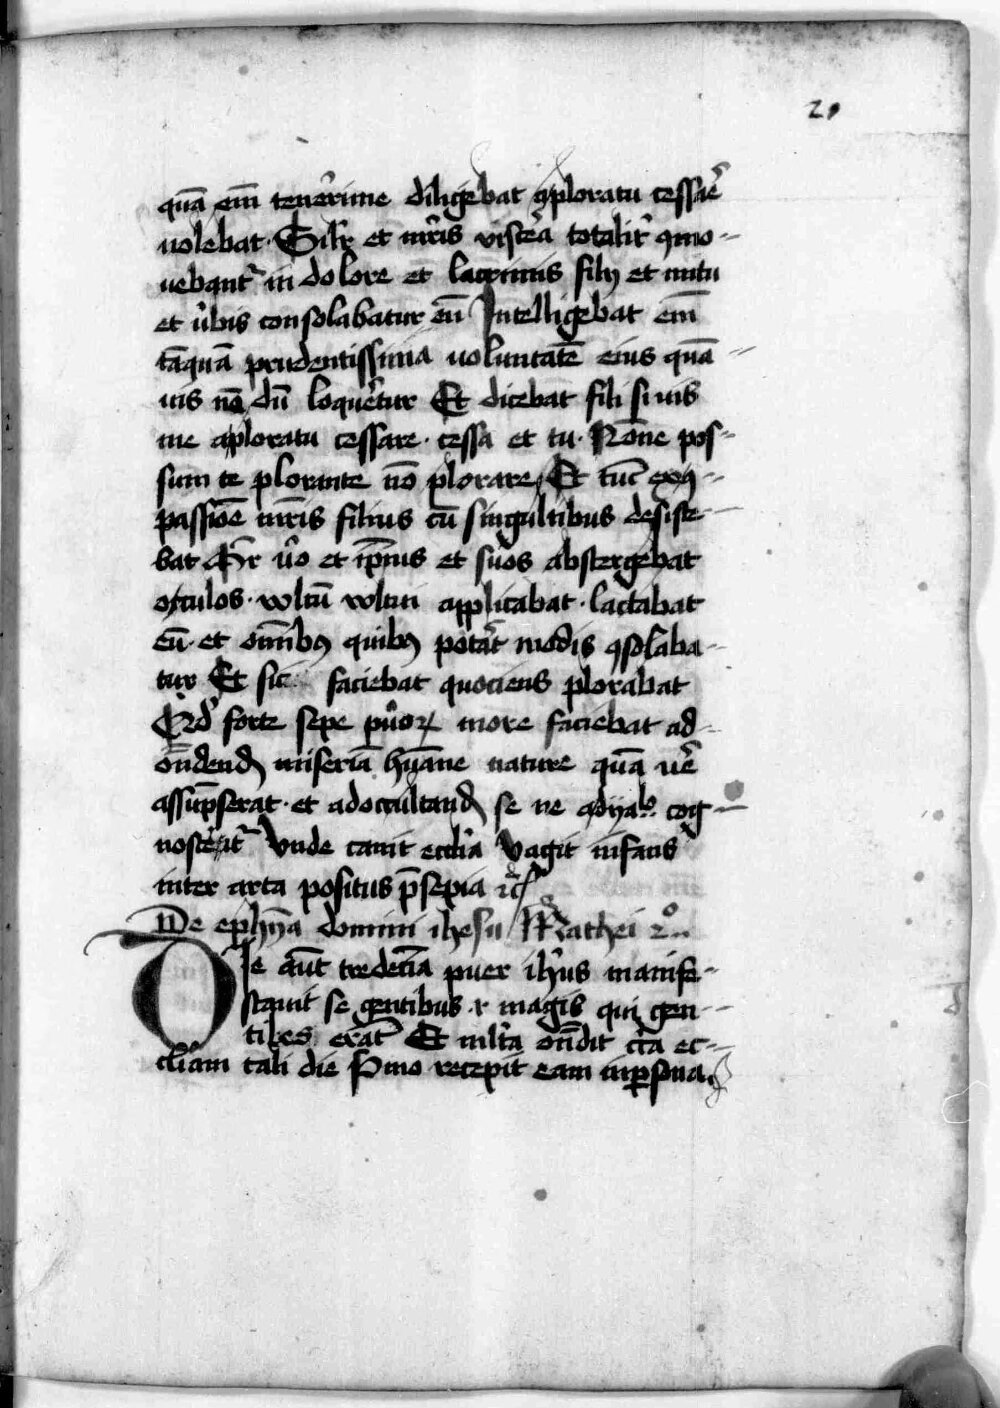 20
quā em̄ tenerrime diligebat aploratu cessare
uolebat. Silr et mr̄is viscera totaliť ꝯmo-
uebant᷑ in dolore et lacrimis filij et nutu
et ūbis consolabatur eū Intelligebat em̄
tāquā prudentissima uoluntatē eius quā-
uis nō dū loqueretur Et dicebat fili si uis
me aploratu cessare. cessa et tu. Nōne pos-
sum te plorante nō plorare Et tūc exꝯ-
passiōe mr̄is filius cū singultibus desiste-
bat Mr̄ ūo et ip̄ius et suos abstergebat
oculos. vultū vultui applicabat. lactabat
eū. et om̄ibꝫ quibꝫ poterat modis ꝯsolaba-
tur Et sic faciebat quociens plorabat
Qd̓ forte sepe pūoꝝ more faciebat ad
on̄dendꝫ miseriā hūane nature quā uē
assūpserat. et adoccultandꝫ se ne adyabo cog-
nosceret᷑ Vnde canit ecclīa Vagit infans
inter arta positus p̄sepia ꝛc̄
De eph̄ya domini ihesu Mathei 2o
Die aūt tredecīa puer ih̄us manife-
stauit se gentibus .i. magis qui gen-
tiles erāt Et mlta on̄dit cīca ec-
cliam tali die Primo recepit eam inpersona